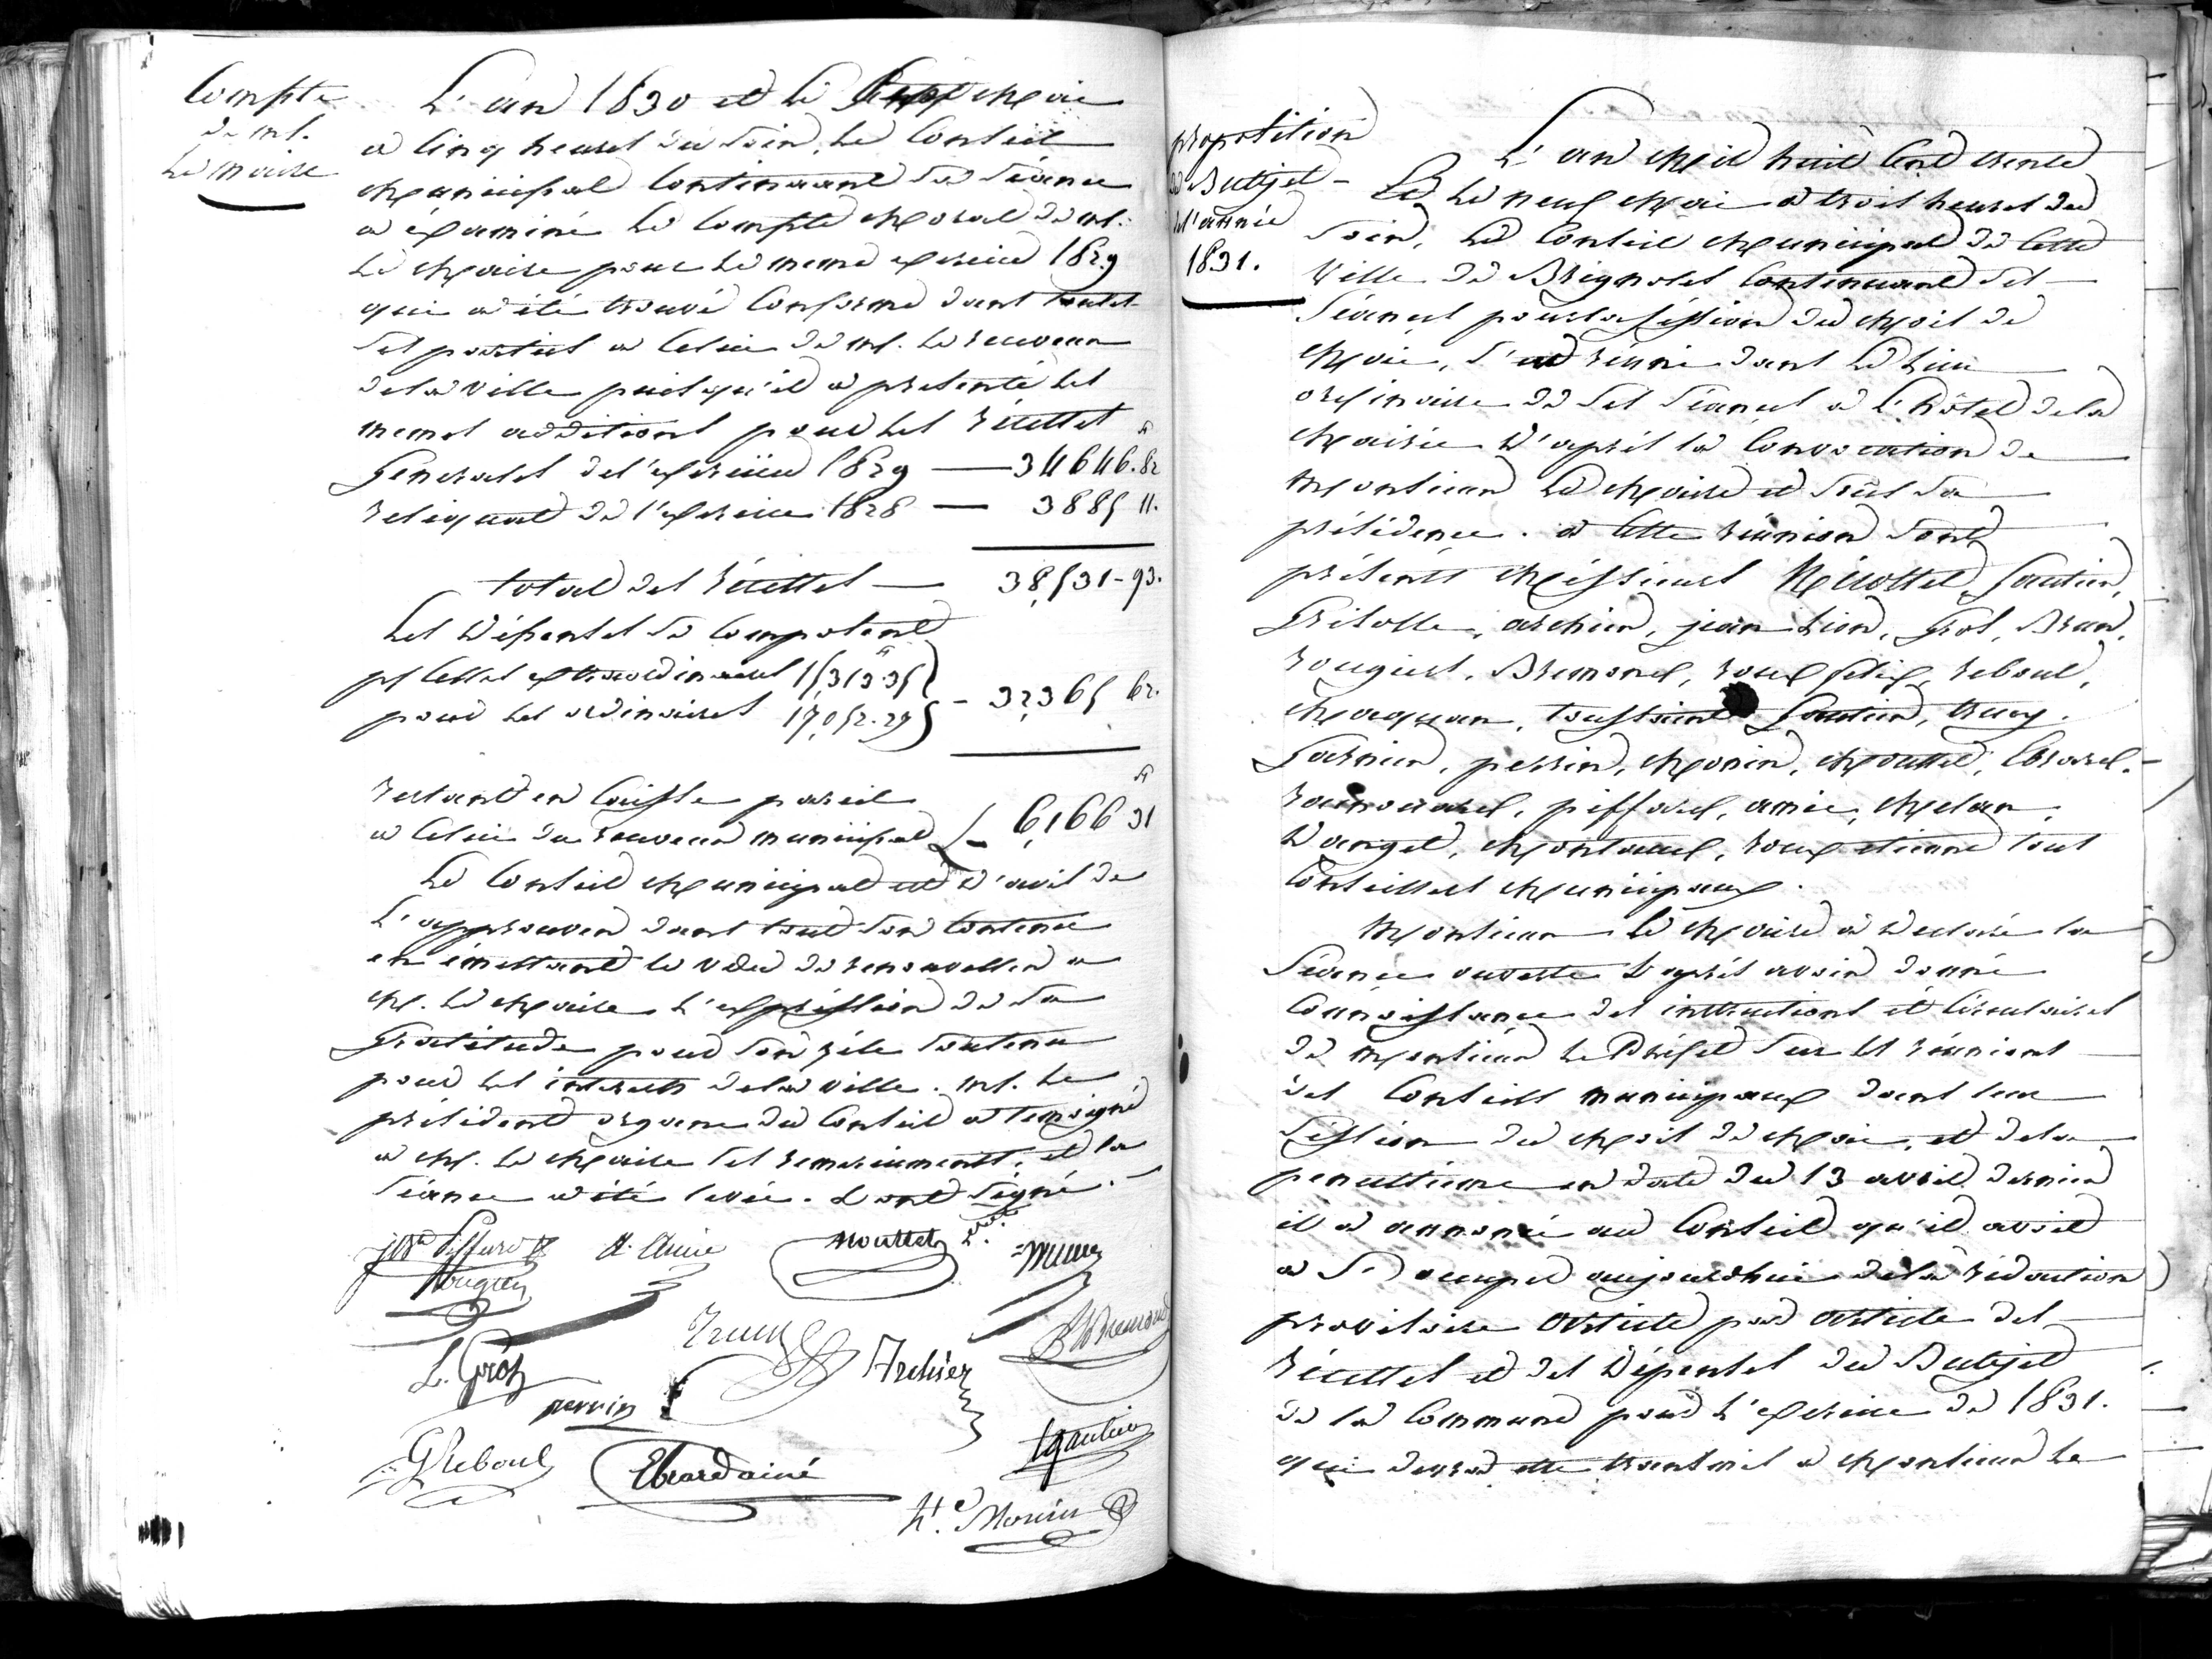 Compte
de mr.
le maire
L'an 1830 et le sept mai
a cinq heures du soir, le Conseil
Municipal continuant sa séance
a éxaminé le Compte Moral de mr.
le Maire pour le meme exercice 1829
qui a été trouvé conforme dans toutes
ses parties a celui de mr. le receveur
de la ville puisqu'il a présenté les
memes additions pour les récettes
Generales de l'exercice 1829 — 34646.82
reliquat de l'exercice 1828 — 3885 11.
total des récettes — 38,531-93.
Les Dépenses se composent
pr celles extraordinaires 15,313 35
pour les ordinaires 17,052.29 } - 32,365 62.
restant en caisse pareil
a celui du receveur municipal } - 6,166 31
Le Conseil Municipal est d'avis de
l'approuver dans tout son contenu
en émettant le vœu de renouveller a
M. le Maire l'expression de sa
Gratitude pour son zèle soutenu
pour les interets de la ville. mr. le
président organe du Conseil a temoigné
a M. le Maire ses remerciements, et la
séance a été levée. & ont signé.
Piffard
A. Amic
Mouttet
Rougier
L. Gros
Truc
Archier
Bremond
perrin
G Reboul
Ebrard ainé
Gautier
hte. Monin
proposition
du Budjet
de l'année
1831.
L'an Mil huit cent trente
Et le neuf Mai a trois heures du
soir, le Conseil Municipal de cette
Ville de Brignoles continuant ses
séances pour la séssion du Mois de
Mai, s'est réuni dans le lieu
ordinaire de ses séances a l'hôtel de la
Mairie d'après la convocation de
Monsieur le Maire et sous sa
présidence. a cette réunion sont
présents Messieurs Gautier,
Grisolle, archier, jean Lion, Gros, Brun,
rougier, Bremond, roux félix, reboul,
Maquan, toussaint Gautier, truc,
Garnier, perrin, Monin, Mouttet, Ebrard,
piffard, amic,
Dauget, roux etienne tous
Conseillers Municipaux.
Monsieur le Maire a déclaré la
séance ouverte & après avoir donné
connoissance des instructions et circulaires
de Monsieur le Préfet sur les réunions
des Conseils municipaux dans leur
séssion du Mois de Mai, et de la
penultieme en date du 13 avril dernier
il a annoncé au Conseil qu'il avoit
a s'occuper aujourd'hui de la rédaction
provisoire article par article des
récettes et des Dépenses du Budjet
de la Commune pour l'exercice de 1831.
qui devra etre transmis a Monsieur le